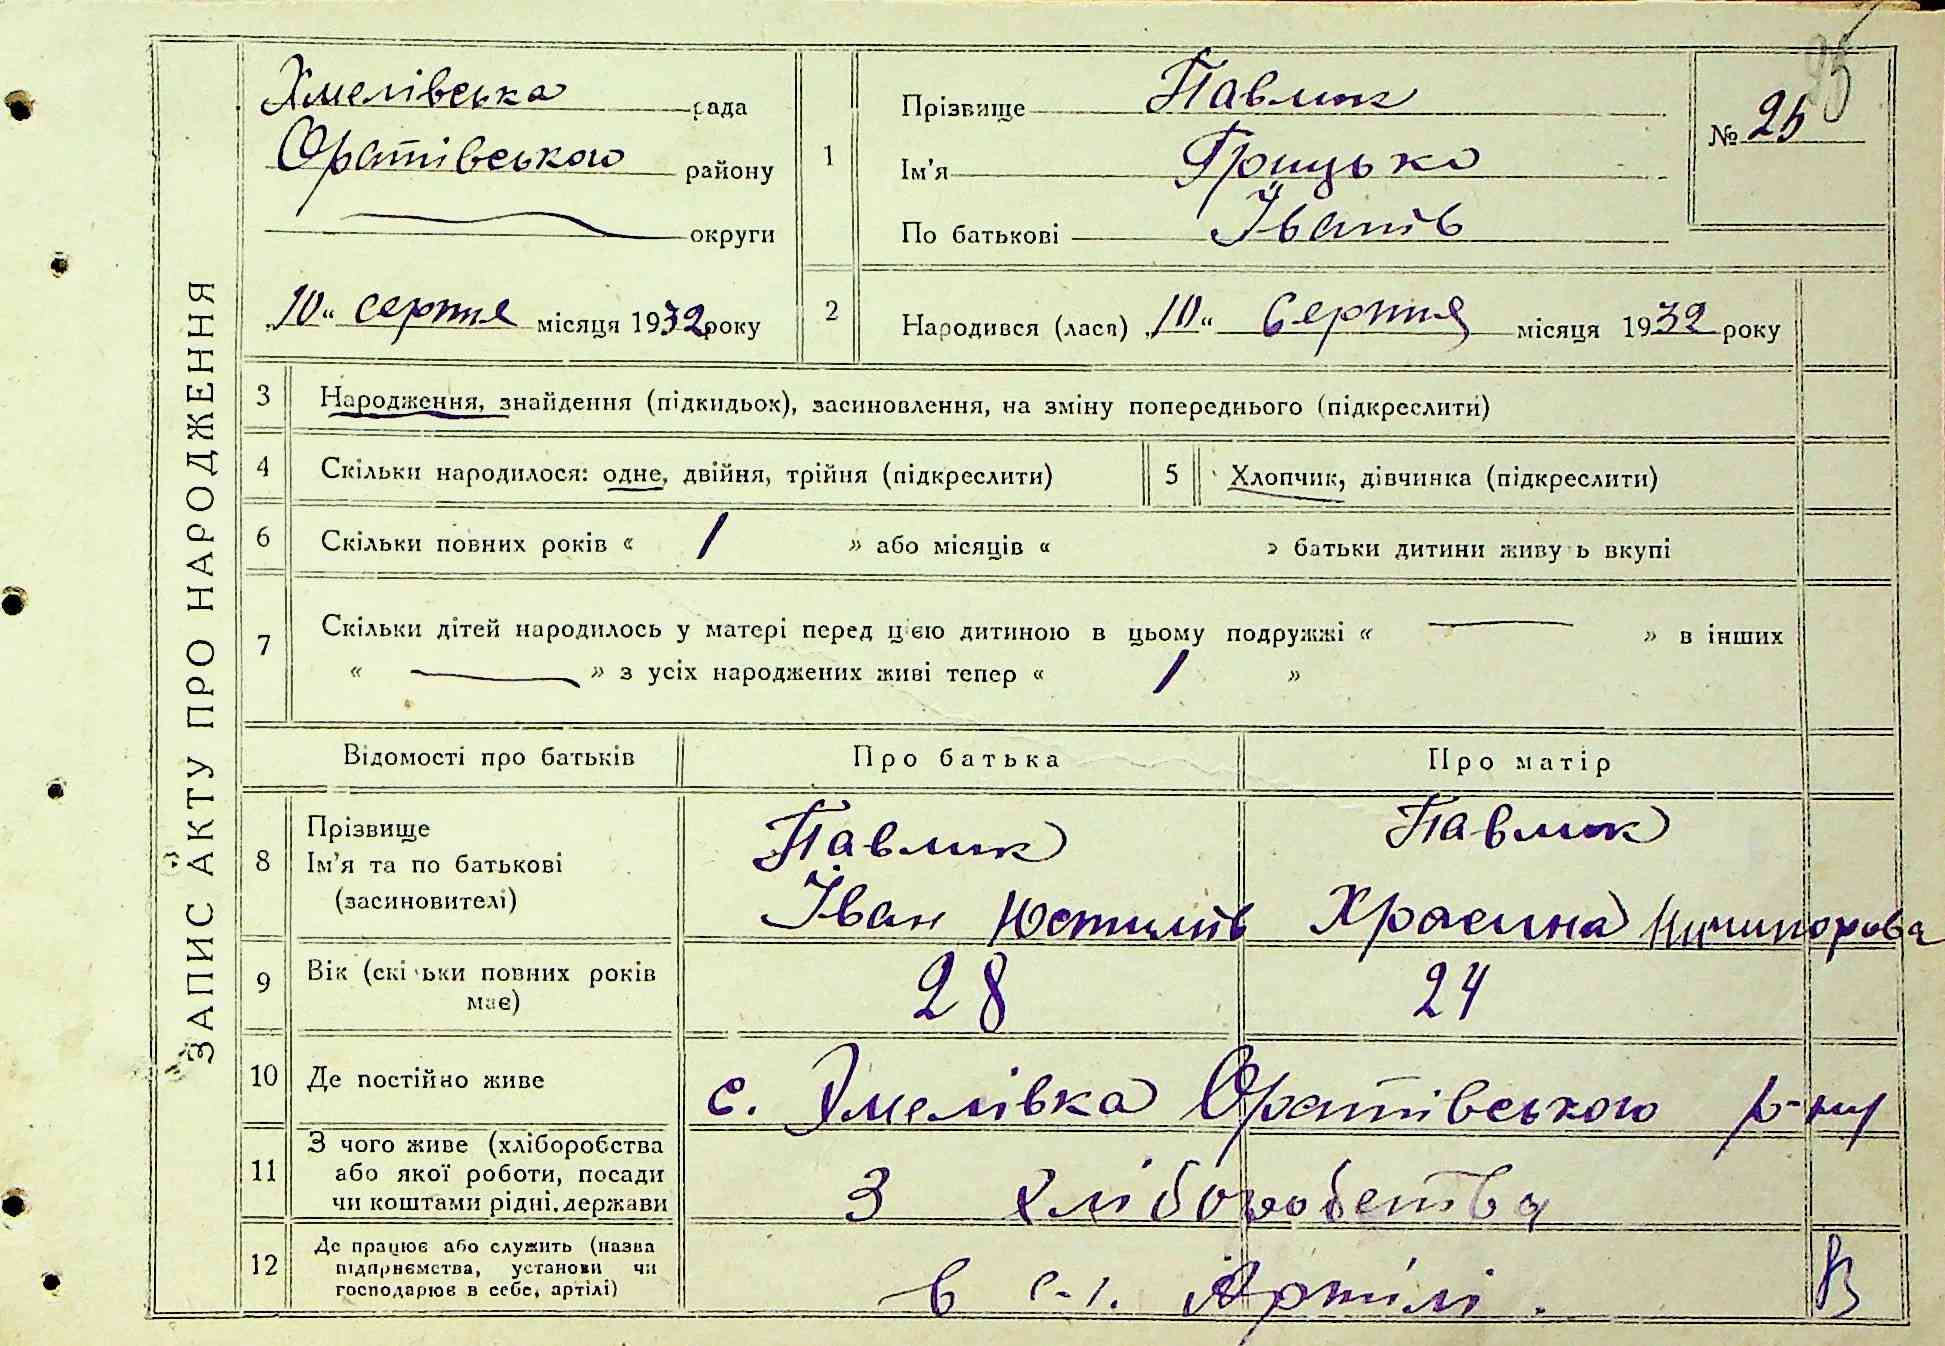 ЗАПИС АКТУ ПРО НАРОДЖЕННЯ
Хмелівська рада
Оратівського району
округи
„10“ серпня місяця 1932 року
1
Прізвище Павлик
Ім'я Грицько
По батькові Іванів
№ 25
25
2
Народився (лась) „10“ Серпня місяця 1932 року
3 Народження, знайдення (підкидьок), засиновлення, на зміну попереднього (підкреслити)
4 Скільки народилося: одне, двійня, трійня (підкреслити) 5 Хлопчик, дівчинка (підкреслити)
6 Скільки повних років « 1 » або місяців « » батьки дитини живу ь вкупі
7 Скільки дітей народилось у матері перед цією дитиною в цьому подружжі « — » в інших
« — » з усіх народжених живі тепер « 1 »
Відомості про батьків Про батька Про матір
8 Прізвище
Ім'я та по батькові
(засиновителі)
Павлик
Іван Юстимів
Павлик
Ничипорова
9 Вік (скі ьки повних років
має)
28 24
10 Де постійно живе с. Хмелівка Оратівського р-ну
11 З чого живе (хліборобства
або якої роботи, посади
чи коштами рідні, держави
З хліборобства
12 Де працює або служить (назва
підприємства, установи чи
господарює в себе, артілі)
в с-г. Артілі.